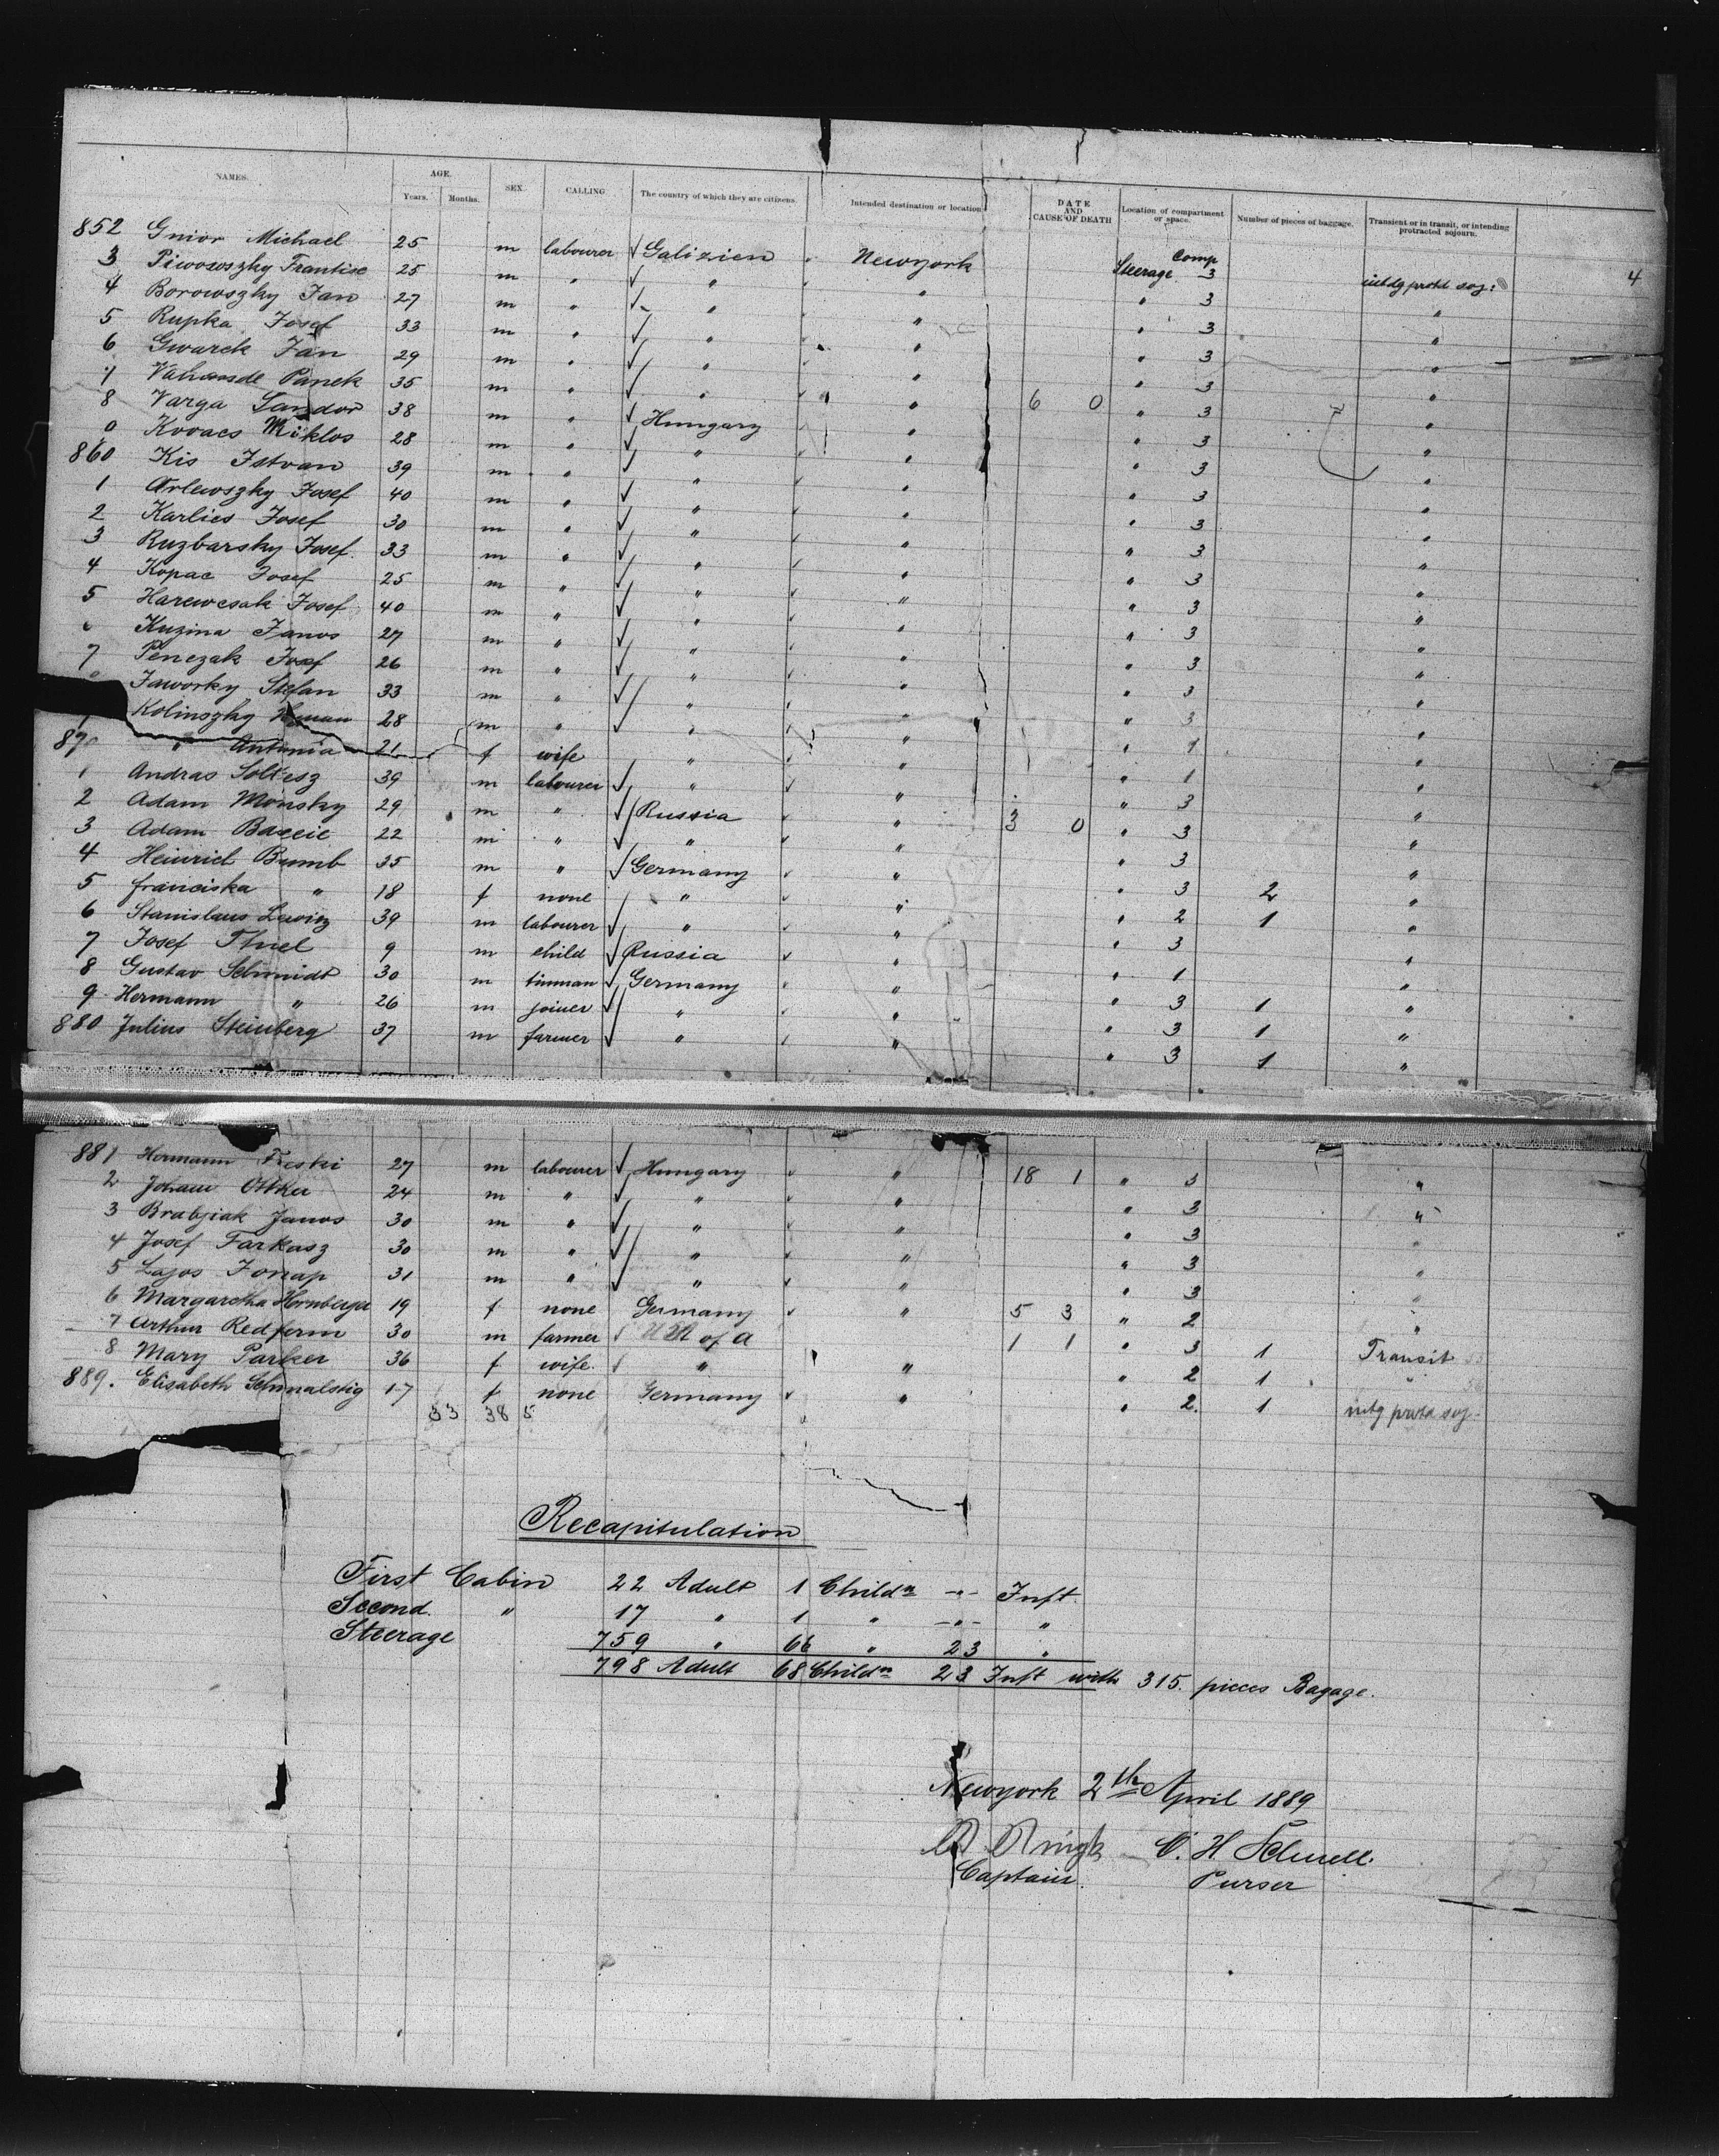 NAMES. AGE. Years. Months. SEX. CALLING The country of which they are citizens. Intended destination or location DATE AND CAUSE OF DEATH Location of compartment or space. Number of pieces of baggage. Transient or in transit, or intending protracted sojourn.
852 Gnior Michael 25 m labourer ✓ Galizien Newyork Steerage Comp 3 4
3 25 m " ✓ " " " 3 "
4 Borowszky Jan 27 m " ✓ " " " 3 "
5 Rupka Josef 33 m " ✓ " " " 3 "
6 Gwarek Jan 29 m " ✓ " " " 3 "
7 Panek 35 m " ✓ " " 6 0 " 3 "
8 Varga Sandor 38 m " ✓ Hungary " " 3 "
Kovacs Miklos 28 m " ✓ " " " 3 "
860 Kis Istvan 39 m " ✓ " " " 3 "
1 Arlewszky Josef 40 m " ✓ " " " 3 "
2 Karlies Josef 30 m " ✓ " " " 3 "
3 Ruzbarsky Josef. 33 m " ✓ " " " 3 "
4 Kopac Josef 25 m " ✓ " " " 3 "
5 Harewcsak Josef 40 m " ✓ " " " 3 "
Kuzina Janos 27 m " ✓ " " " 3 "
7 Penczak Josef 26 m " ✓ " " " 3 "
Jaworky Stefan 33 m " ✓ " " " 3 "
Kolinszky 28 m " ✓ " " " 1 "
870 " Antonia 21 f wife " " " 1 "
1 Andras Soltesz 39 m labourer ✓ " " " 3 "
2 Adam Monsky 29 m " ✓ Russia " 3 0 " 3 "
3 Adam 22 m " ✓ " " " 3 "
4 Heinrich Bumb 35 m " ✓ Germany " " 3 2 "
5 franciska " 18 f none " " " 2 1 "
6 Stanislaus Lewicz 39 m labourer ✓ " " " 3 "
7 Josef Thuel 9 m child ✓ Russia " " 1 "
8 Gustav Schmidt 30 m tinman ✓ Germany " " 3 1 "
9 Hermann " 26 m joiner ✓ " " " 3 1 "
880 Julius Steinberg 37 m farmer ✓ " " " 3 1 "
881 Hermann Freski 27 m labourer ✓ Hungary " 18 1 " 3 "
2 Johann 24 m " ✓ " " " 3 "
3 Brabziak Janos 30 m " ✓ " " " 3 "
4 Josef Farkasz 30 m " ✓ " " " 3 "
5 Lajos Jonap 31 m " ✓ " " " 3 "
6 Margaretha Hornberger 19 f none Germany " 5 3 " 2 "
7 Arthur Redferm 30 m farmer ✓ of A 1 1 " 3 1 Transit
8 Mary Parker 36 f wife. ✓ " " " 2 1 "
889. Elisabeth Schmalstig 17 f none Germany " " 2. 1 intg protd soj-
33 38 5
Recapitulation
First Cabin 22 Adult 1 Childn -"- Inft.
Second. " 17 " 1 " -"- "
Steerage 759 " 66 " 23 "
798 Adult 68 Childn 23 Inft with 315. pieces Bagage.
Newyork 2th April 1889
Captain. Purser